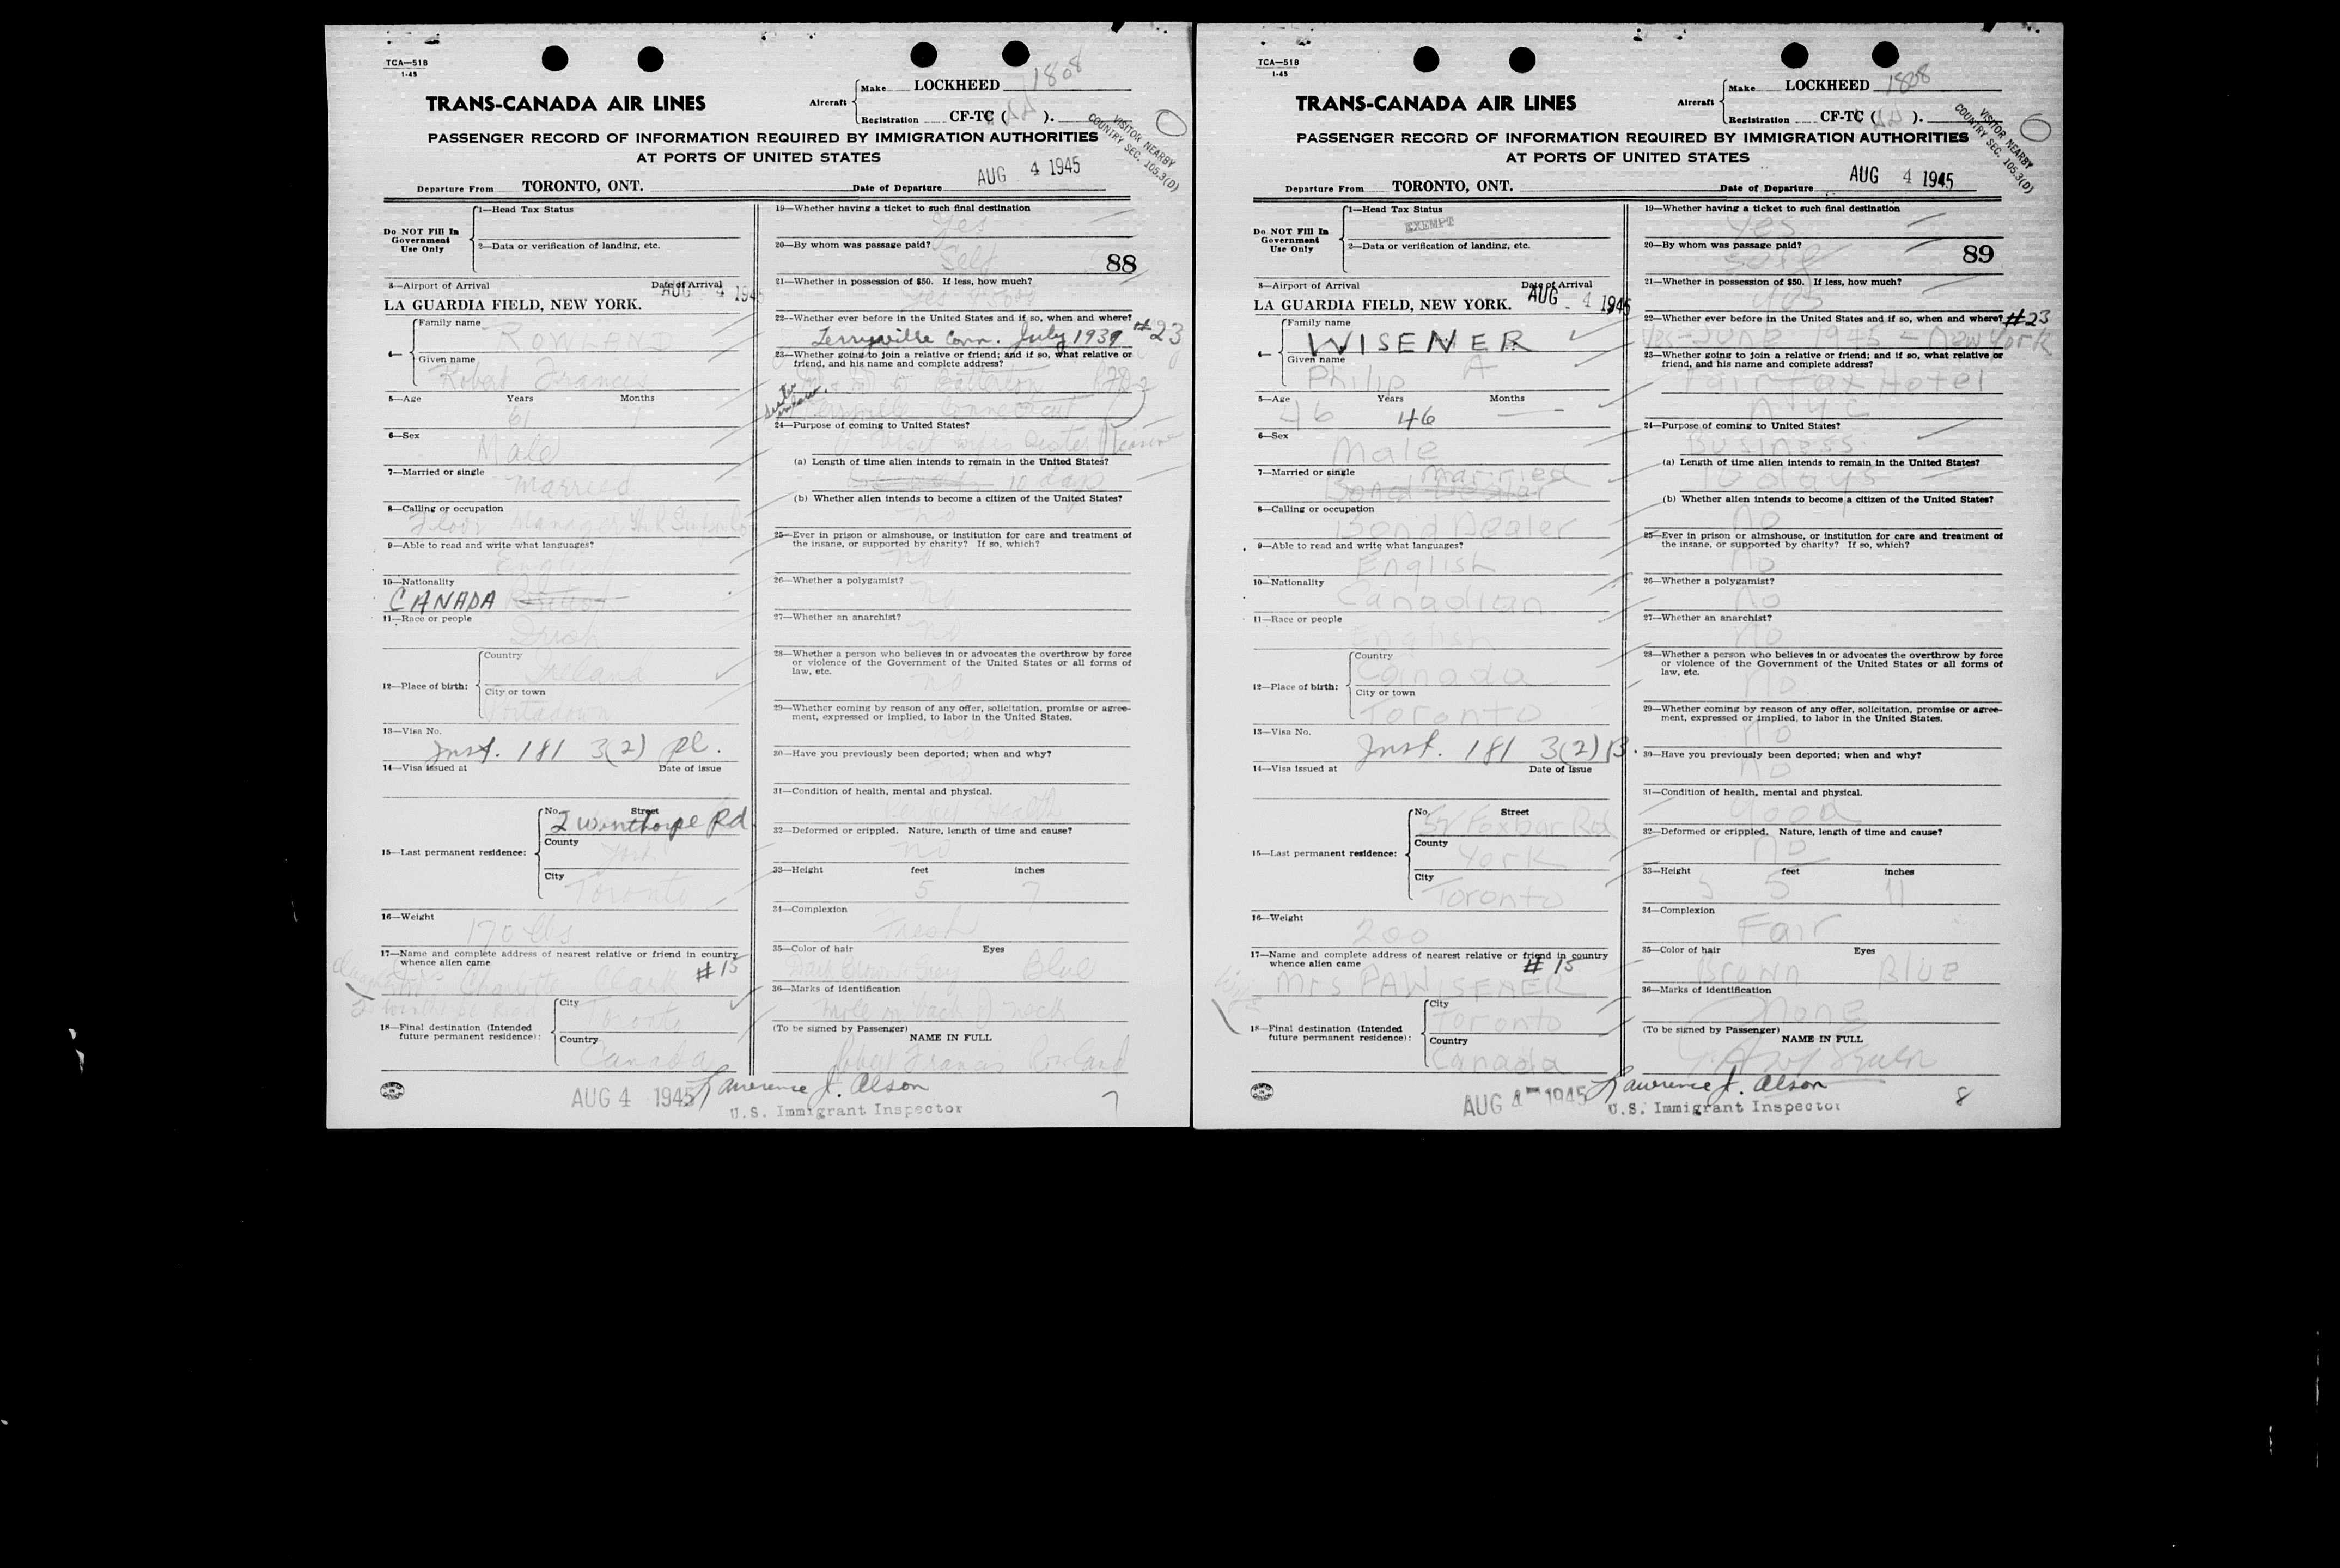 TCA—518
1-45
TRANS-CANADA AIR LINES
Aircraft
Make LOCKHEED 1808
Registration CF-TC ( ).
VISITOR NEARBY
COUNTRY SEC. 105.3(D)
PASSENGER RECORD OF INFORMATION REQUIRED BY IMMIGRATION AUTHORITIES
AT PORTS OF UNITED STATES
Departure From TORONTO, ONT. Date of Departure AUG 4 1945
Do NOT Fill In
Government
Use Only
1—Head Tax Status
2—Data or verification of landing, etc.
3—Airport of Arrival Date of Arrival
LA GUARDIA FIELD, NEW YORK. AUG 4 1945
4—
Family name
ROWLAND
Given name
Robert Francis
5—Age Years Months
61 1
6—Sex
Male
7—Married or single
Married
8—Calling or occupation
Floor Manager
9—Able to read and write what languages?
English
10—Nationality
CANADA British
11—Race or people
Irish
12—Place of birth:
Country
Ireland
City or town
Portadown
13—Visa No.
Inst. 181 3(2) Pl.
14—Visa issued at Date of issue
15—Last permanent residence:
No. Street
2 Winthorpe Rd.
County
York
City
Toronto
16—Weight
170 lbs
17—Name and complete address of nearest relative or friend in country
whence alien came #15
Charlotte Clark
2 Winthorpe Road
18—Final destination (Intended
future permanent residence):
City
Toronto
Country
Canada
AUG 4 1945
19—Whether having a ticket to such final destination
Yes
20—By whom was passage paid?
Self
88
21—Whether in possession of $50. If less, how much?
Yes
22—Whether ever before in the United States and if so, when and where?
Terryville Conn. July 1939 #23
23—Whether going to join a relative or friend; and if so, what relative or
friend, and his name and complete address?
Batterton
Terryville Connecticut
24—Purpose of coming to United States?
Visit wifes sister Pleasure
(a) Length of time alien intends to remain in the United States?
10 days
(b) Whether alien intends to become a citizen of the United States?
no
25—Ever in prison or almshouse, or institution for care and treatment of
the insane, or supported by charity? If so, which?
no
26—Whether a polygamist?
no
27—Whether an anarchist?
no
28—Whether a person who believes in or advocates the overthrow by force
or violence of the Government of the United States or all forms of
law, etc.
no
29—Whether coming by reason of any offer, solicitation, promise or agree-
ment, expressed or implied, to labor in the United States.
no
30—Have you previously been deported; when and why?
no
31—Condition of health, mental and physical.
Perfect Health
32—Deformed or crippled. Nature, length of time and cause?
no
33—Height feet inches
5 7
34—Complexion
Fresh
35—Color of hair Eyes
Dark Brown Grey Blue
36—Marks of identification
Mole on back of neck
(To be signed by Passenger)
NAME IN FULL
Robert Francis Rowland
Lawrence J. Alson
U.S. Immigrant Inspector
7
TCA—518
1-45
TRANS-CANADA AIR LINES
Aircraft
Make LOCKHEED 1808
Registration CF-TC ( ).
VISITOR NEARBY
COUNTRY SEC. 105.3(D)
PASSENGER RECORD OF INFORMATION REQUIRED BY IMMIGRATION AUTHORITIES
AT PORTS OF UNITED STATES
Departure From TORONTO, ONT. Date of Departure AUG 4 1945
Do NOT Fill In
Government
Use Only
1—Head Tax Status
EXEMPT
2—Data or verification of landing, etc.
3—Airport of Arrival Date of Arrival
LA GUARDIA FIELD, NEW YORK. AUG 4 1945
4—
Family name
WISENER
Given name
Philip A
5—Age Years Months
46 46
6—Sex
Male
7—Married or single married
Bond Dealer
8—Calling or occupation
Bond Dealer
9—Able to read and write what languages?
English
10—Nationality
Canadian
11—Race or people
English
12—Place of birth:
Country
Canada
City or town
Toronto
13—Visa No.
Inst. 181 3(2) B.
14—Visa issued at Date of issue
15—Last permanent residence:
No. Street
Foxbar Rod
County
York
City
Toronto
16—Weight
200
17—Name and complete address of nearest relative or friend in country
whence alien came # 15
Mrs PA WISENER
18—Final destination (Intended
future permanent residence):
City
Toronto
Country
Canada
AUG 4 1945
19—Whether having a ticket to such final destination
Yes
20—By whom was passage paid?
self
89
21—Whether in possession of $50. If less, how much?
yes
22—Whether ever before in the United States and if so, when and where? #23
Yes - June 1945 - New York
23—Whether going to join a relative or friend; and if so, what relative or
friend, and his name and complete address?
Fairfax Hotel
NYC
24—Purpose of coming to United States?
Business
(a) Length of time alien intends to remain in the United States?
10 days
(b) Whether alien intends to become a citizen of the United States?
no
25—Ever in prison or almshouse, or institution for care and treatment of
the insane, or supported by charity? If so, which?
no
26—Whether a polygamist?
no
27—Whether an anarchist?
no
28—Whether a person who believes in or advocates the overthrow by force
or violence of the Government of the United States or all forms of
law, etc.
no
29—Whether coming by reason of any offer, solicitation, promise or agree-
ment, expressed or implied, to labor in the United States.
no
30—Have you previously been deported; when and why?
no
31—Condition of health, mental and physical.
good
32—Deformed or crippled. Nature, length of time and cause?
no
33—Height feet inches
5 11
34—Complexion
Fair
35—Color of hair Eyes
Brown Blue
36—Marks of identification
None
(To be signed by Passenger)
NAME IN FULL
Lawrence J. Alson
U.S. Immigrant Inspector
8